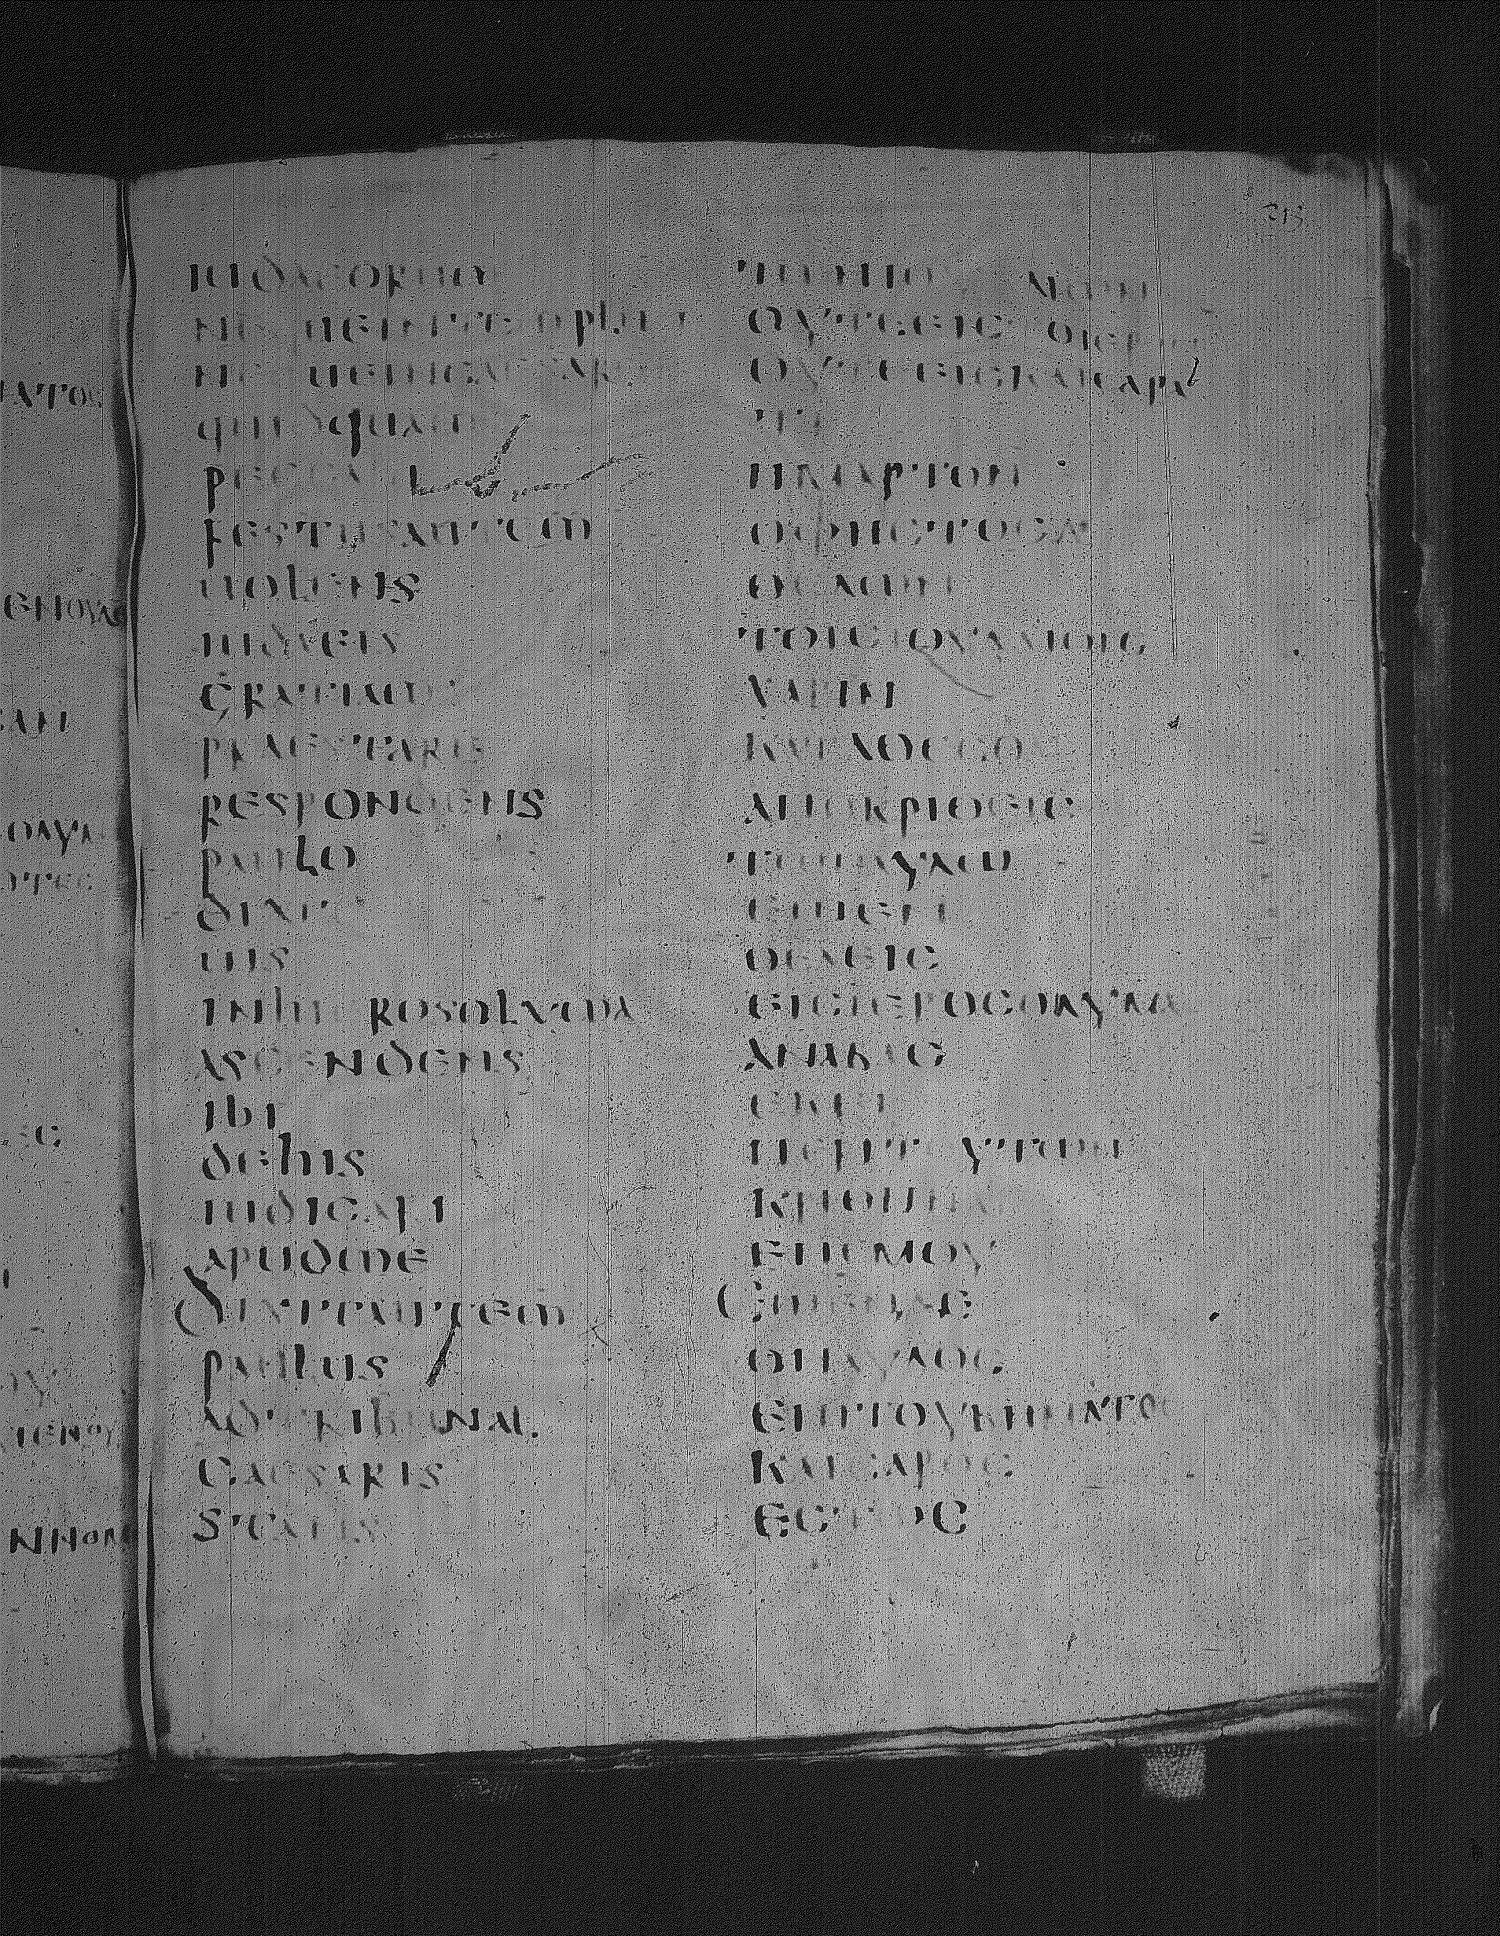 IUDAEORUM
NEQUEINTEMPLUM
NEQUEINCAESAREM
QUICQUAM
PECCAUI
FESTUSAUTEM
UOLENS
IUDAEIS
GRATIAM
PRAESTARE
RESPONDENS
PAULO
DIXIT
UIS
INHIEROSOLYMA
ASCENDENS
IBI
DEHIS
IUDICARI
APUDME
DIXITAUTEM
PAULUS
ADTRIBUNAL
CAESARIS
STANS
ΟΥΤΕΕΙϹΤΟΙΕΡΟΝ
ΟΥΤΕΕΙϹΚΑΙϹΑΡΑ
ΤΙ
ΗΜΑΡΤΟΝ
ΟΦΗϹΤΟϹΔΕ
ΘΕΛΩΝ
ΤΟΙϹΙΟΥΔΑΙΟΙϹ
ΧΑΡΙΝ
ΑΠΟΚΡΙΘΕΙϹ
ΤΩΠΑΥΛΩ
ΕΙΠΕΝ
ΘΕΛΕΙϹ
ΕΙϹΙΕΡΟϹΟΛΥΜΑ
ΑΝΑΒΑϹ
ΕΚΕΙ
ΠΕΡΙΤΟΥΤΩΝ
ΚΡΙΘΗΝΑΙ
ΕΠΕΜΟΥ
ΕΙΠΕΝΔΕ
ΟΠΑΥΛΟϹ
ΕΠΙΤΟΥΒΗΜΑΤΟϹ
ΚΑΙϹΑΡΟϹ
ΕϹΤΩϹ